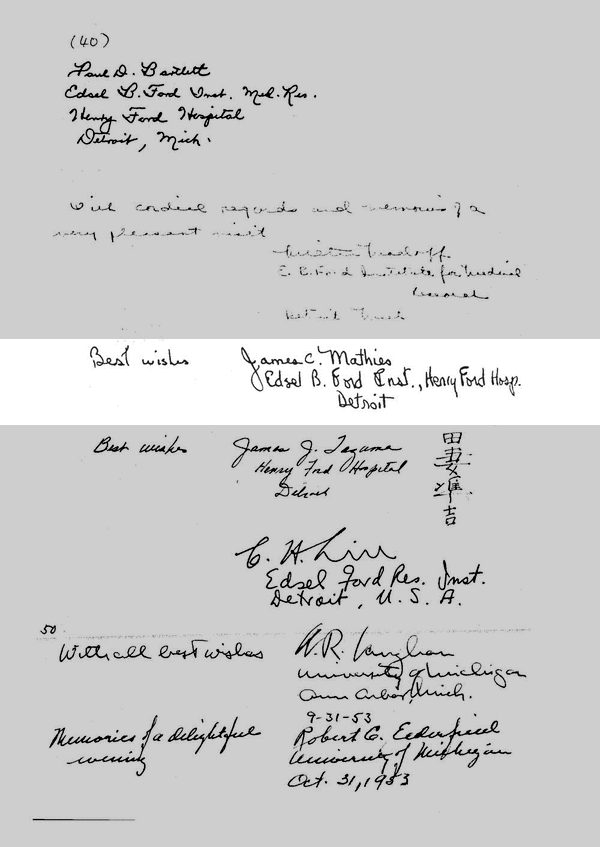 (40)
Paul D. Bartlett
Edsel B. Ford Inst. Med. Res.
Henry Ford Hospital
Detroit, Mich.
With cordial regards and memories of a
very pleasant visit
E. B. Ford Institute for Medical
Research
Detroit Mich
Best wishes James C. Mathies
Edsel B. Ford Inst., Henry Ford Hosp.
Detroit
Best wishes James J. Tazuma
Henry Ford Hospital
Detroit
田妻準吉
C. H. Liu
Edsel Ford Res. Inst.
Detroit, U. S. A.
50
With all best wishes W.R. Vaughan
University of Michigan
Ann Arbor, Mich.
9-31-53
Memories of a delightful Robert C. Elderfield
evening University of Michigan
Oct. 31, 1953